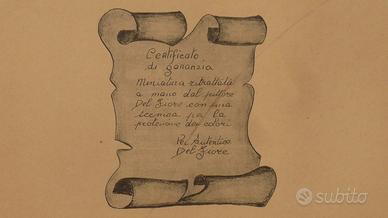 Certificato
di garanzia
Miniatura ritrattata
a mano dal pittore
Del Fiore con una
tecnica per la
protezione dei colori
Per Autentica
Del Fiore
subito